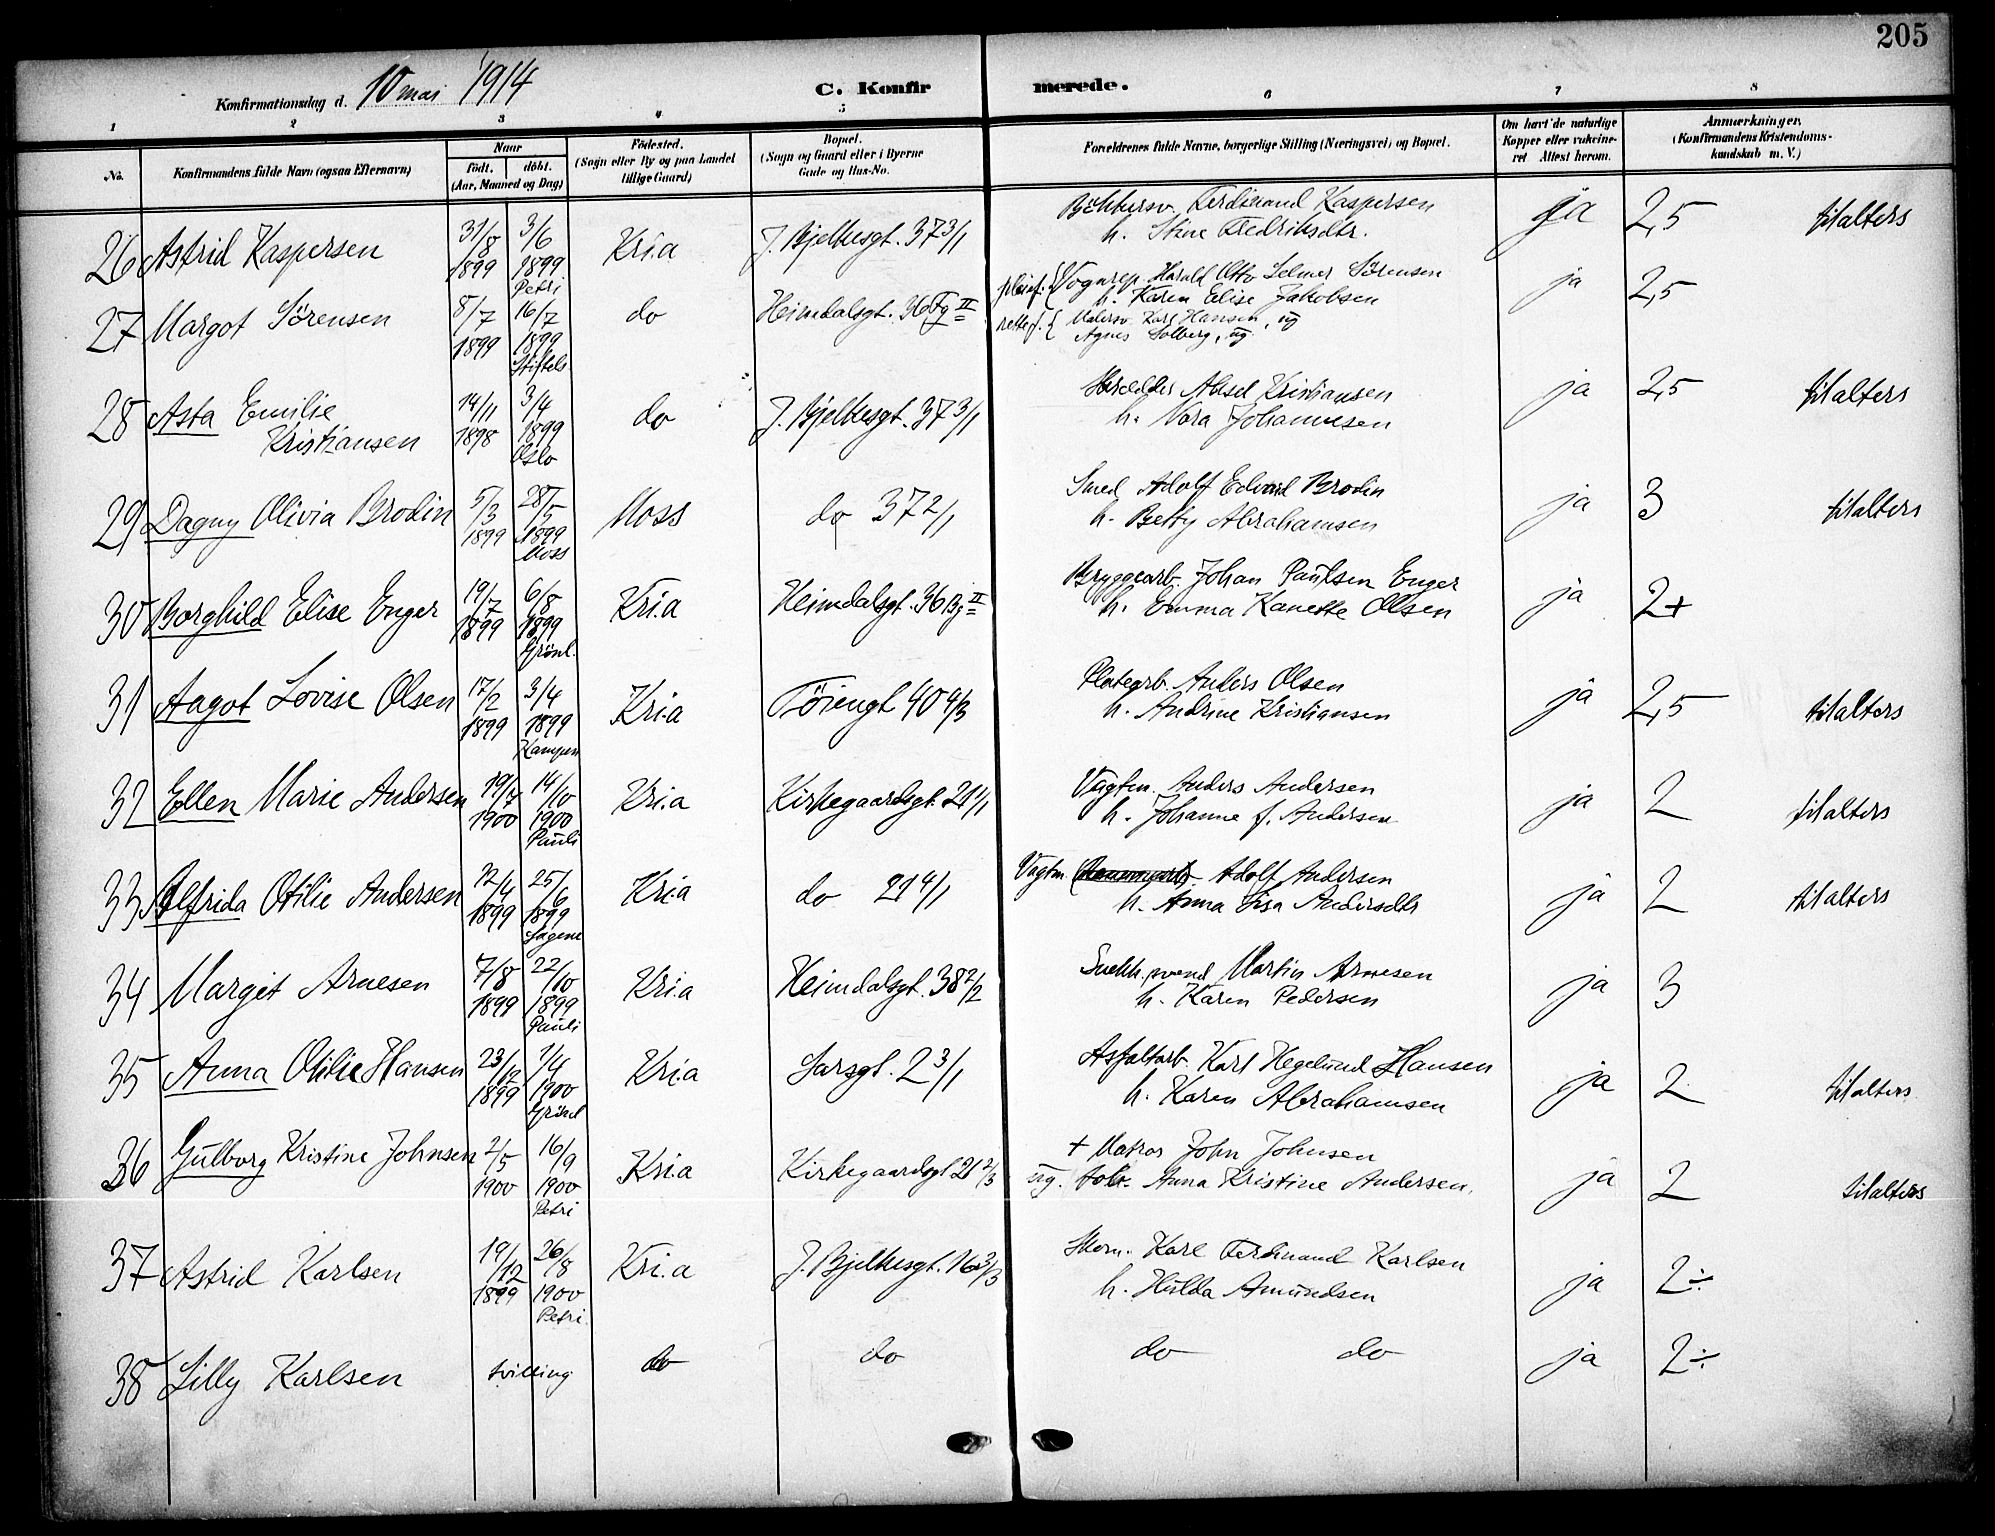 205
Konfirmationsdag d. 10 mai 1914
C. Konfirmerede.
1 2 3 4 5 6 7 8
No. Konfirmandens fulde Navn (ogsaa Efternavn) Naar født. døbt. (Aar, Maaned og Dag) Fødested. (Sogn eller By og paa Landet tillige Gaard) Bopæl. (Sogn og Gaard eller i Byerne Gade og Hus-No. Forældrenes fulde Navne, borgerlige Stilling (Næringsvei) og Bopæl. Om havt de naturlige Kopper eller vakcineret Attest herom. Anmærkninger. (Konfirmandens Kristendomskundskab m. V.)
26 Astrid Kaspersen 31/8 1899 3/6 1899 Petri Kr.i.a J. Bjelkesgt. 37 3/1 Ferdinand Kaspersen ja 2,5 til alters
h. Stine Fredriksdtr.
27 Margot Sörensen 8/7 1899 16/7 1899 Stiftels do Heimdalsgt. 36 Fg II pleief. { Vognrep. Harald Otto Selmer Sörensen ja 2,5
h. Karen Elise Jakobsen
rette f. { Malersv. Karl Hansen, ug
Agnes Solberg, ug
28 Asta Emilie Kristiansen 14/11 1898 3/4 1899 Oslo do J. Bjelkesgt. 37 3/1 Aksel Kristiansen ja 2,5 til alters
h. Nora Johannesen
29 Dagny Olivia Brodin 5/3 1899 28/5 1899 Moss Moss do 37 2/1 Smed Adolf Edvard Brodin ja 3 til alters
h. Betty Abrahamsen
30 Borghild Elise Enger 19/7 1899 6/8 1899 Grönl. Kr.i.a Heimdalsgt. 36 Bg II Bryggearb. Johan Paulsen Enger ja 2+
h. Emma Kanette Olsen
31 Aagot Lovise Olsen 17/2 1899 3/4 1899 Kampen Kr.i.a Töiengt 40 4/3 Platearb. Anders Olsen ja 2,5 til alters
h. Andrine Kristiansen
32 Ellen Marie Andersen 19/7 1900 14/10 1900 Pauli Kr.i.a Kirkegaardsgt. 21 4/1 Vagtm. Anders Andersen ja 2 til alters
h. Johanne f. Andersen
33 Alfrida Otilie Andersen 12/4 1899 25/6 1899 Sagene Kr.i.a do 21 4/1 Vagtm. Adolf Andersen ja 2 til alters
h. Anna Lisa Andersdtr
34 Margit Arnesen 7/8 1899 22/10 1899 Pauli Kr.i.a Heimdalsgt. 38 2/2 Snekk.svend Martin Arnesen ja 3
h. Karen Pedersen
35 Anna Otilie Hansen 23/12 1899 1/4 1900 Grönl Kr.i.a Sarsgt. 2 3/1 Asfaltarb. Karl Hegelund Hansen ja 2 til alters
h. Karen Abrahamsen
36 Gulborg Kristine Johnsen 2/5 1900 16/9 1900 Petri Kr.i.a Kirkegaardsgt 21 2/3 + Matros John Johnsen ja 2 til alters
ug. Anna Kristine Andersen.
37 Astrid Karlsen 19/12 1899 26/8 1900 Petri Kr.i.a J. Bjelkesgt. 16 3/3 Skom. Karl Ferdinand Karlsen ja 2÷
h. Hulda Amundsen
38 Lilly Karlsen tvilling do do do do ja 2÷